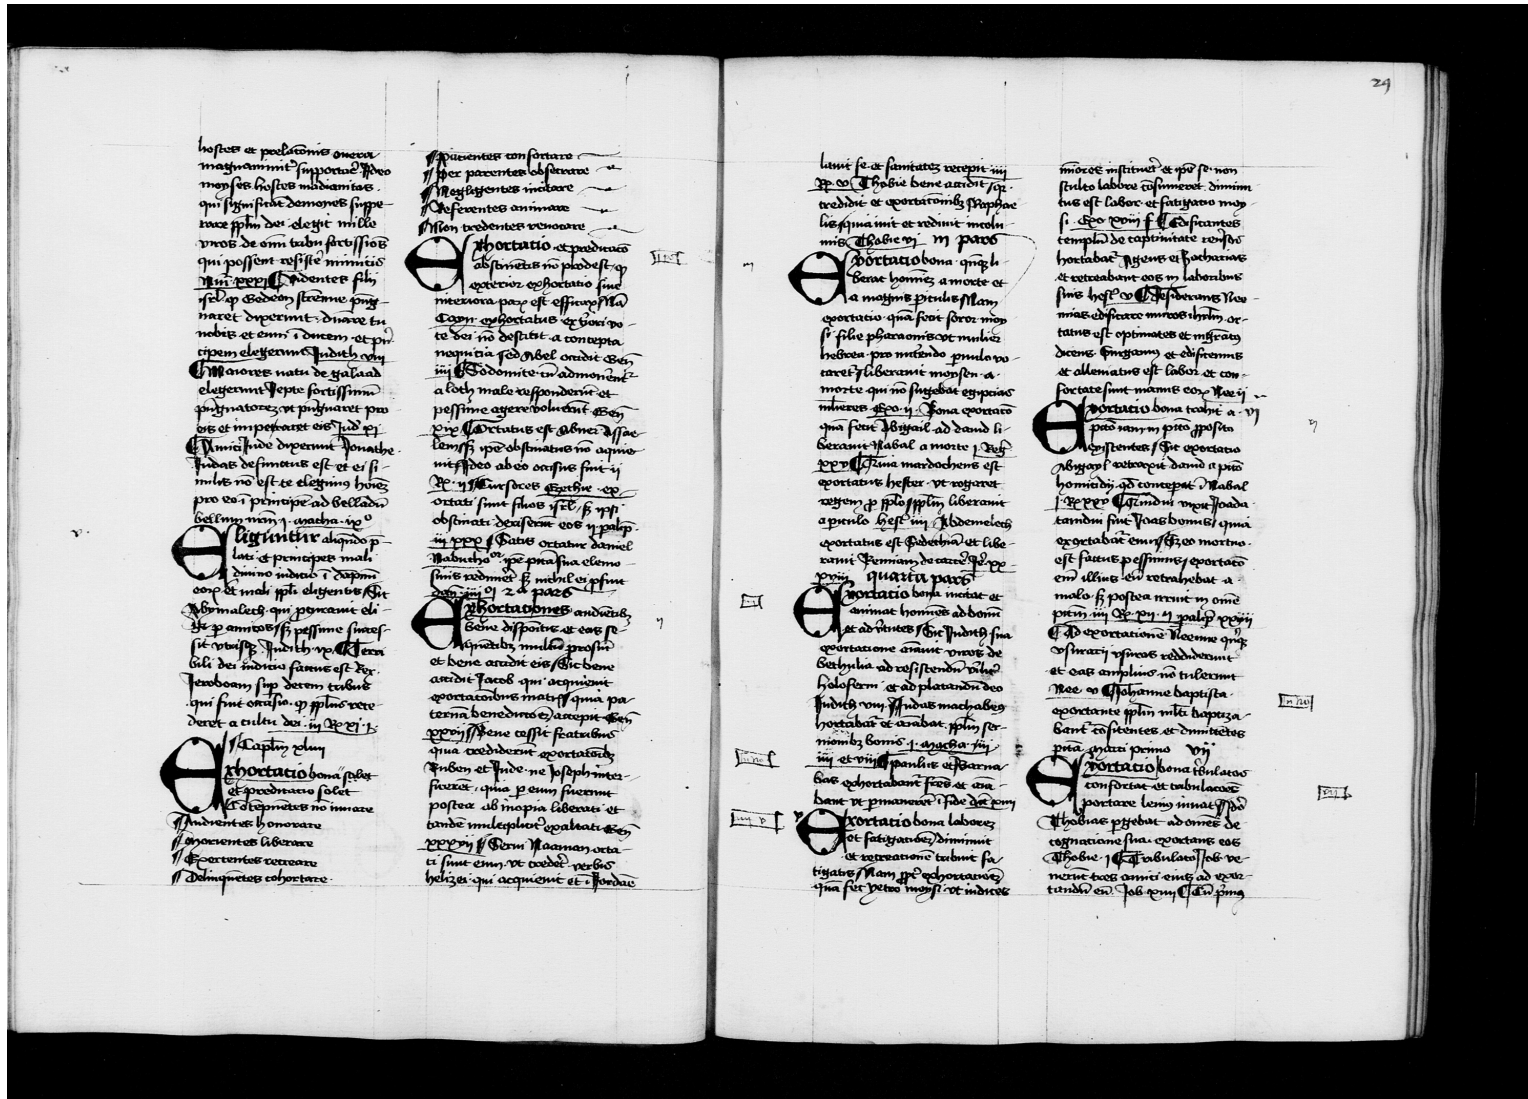 hostes et prelatōnis onera
magnanimit᷑ supportar᷑ Ideo
moyses hostes madianitas
qui significāt demones supe-
rare ppl̄m dei elegit mille
viros de om̄i tribu fortissiōs
qui possent resister᷑ inimicis
Nūi xxxi ¶ Videntes filii
isrl̄ ꝙ Gedeon strennue pug-
naret dixerunt dn̄are tu
nobis et eum i ducem et pri
cipem elegerunt Judith viii
¶ Maiores natu de galaad
elegerunt Jepte fortissimū
pūgnatorez vt pūgnaret pro
eis et imperaret eis Jud xi
¶ Amici Jude dixerunt Jonathe
Judas defunctus est et ei si-
milis nō est te elegimus hoiez
pro eo i principē ad bellādū
bellum nr̄m i macha ix°
Eliguntur aliqn̄do p̄
lati et principes mali
diuino iudicio i dāpnū
eoꝝ et mali ppl̄i eligentis Sic
Abymalech qui procurauit eli-
gi per amicos sꝫ pessime succes-
sit vtrisqꝫ Judith ix ¶ Terri
bili dei iudicio factus est Rex
Jeroboam sup decem tribus
qui fuit occasio ꝙ ppl̄us rece-
deret a cultu dei iii R xi i
Capl̄m xliiii
Exhortacio bona solet
et predicatio solet
Cōtēpnētes nō iuuare
Audientes honorare
morientes liberare
Exercentes recreare
Delinquētes cohortare
i
Pacientes confortare
Per parentes obsecrare
Negligentes incitare
Referentes animare
Non credentes reuocare
Exhortatio et predicacō
abstinētis nō prodest ꝙ
exterior exhortatio siue
interiora parū est efficax Nā
Cayn exhortatus ex vōri vo-
te dei nō destitit a concepta
nequicia sed Abel occidit Gen̄
iiii ¶ Sodomite cū admonerēt᷑
a loth male responderūt et
pessime agere voluerūt Gen̄
xix ¶ Ortatus est Abner Assae-
lem sꝫ ipē obstinatus nō acquie-
uit Ideo ab eo occisus fuit ii
R ii ¶ Cursores Ezechie ex-
ortati sunt filios isrl̄ sꝫ ipsi
obstinati deriserūt eos ii palip̄
iii xxx ¶ Satis ortatur daniel
Nabuchoᵒʳ ipē pctā sua elemo-
sinis redimer᷑ sꝫ nichil ei pfuit
dan iiii °i 2ᵃ pars
Exhortationes audiētibꝫ
bene dispositis et eas se-
quētibꝫ multū prosūt
et bene accidit eis Sic bene
accidit Jacob qui acquieuit
exortacōibus matris quia pa-
ternā benedictōꝫ accepit Gen̄
xxvii ¶ Bene cessit fratribus
quia crediderūt exortatōibꝫ
Ruben et Jude ne Joseph inter-
ficeret quia per eum fuerunt
postea ab inopia liberati et
tandē multiplicit᷑ exaltati Gen̄
xxxvii ¶ Serui Naaman orta-
ti sunt eum vt creder᷑ verbis
helizei qui acquieuit et i Jordāe
24
lauit se et sanitatez recepit iiii
R v ¶ Thobie bene accidit qr
credidit et exortatōibꝫ Raphae
lis quia iuit et rediuit incolu-
mis Thobie vi iii pars
Exortacio bona qn̄qꝫ li-
berat homiēz a morte et
a magnis periculis Nam
exortatio quā fecit soror moy
si filie pharaonis vt mulier
hebrea pro nutriendo puulo vo-
caret liberauit moysen a
morte qui nō sugebat egipcias
ml̄ieres Exo ii Bona exortacō
quā fecit Abigail ad dauid li-
berauit Nabal a morte i Reg᷑
xxv ¶ Quia mardocheus est
exortatus hester vt rogaret
regem p pplo ppl̄m liberauit
a periculo hest᷑ iiii Abdemelech
exortatus est Sedechiā et libe-
rauit Jeremiam de carcer᷑ Jer᷑ xx
xviii quarta pars
Exortacio bona incitat et
animat homines ad bonū
et ad v̄tutes Sic Judith sua
exortatione aīauit viros de
bethulia ad resistendū virilit᷑
holoferni et ad placandū deo
Judith viii Judas machabeus
hortabat᷑ et aīabat ppl̄m ser-
monibꝫ bonis i macha iiii
iiii et viii ¶ Paulus et Barna-
bas exhortabant᷑ fr̄es et aīa-
bant vt pmaneret i fide Act xiiii
Exortacio bona laborez
et fatigacōēz diminuit
et recreationē tribuit fa-
tigatis Nam ppt᷑ exhortacōēz
quā fec̄ Yetro moysi vt iudices
v
m̄ores institueret᷑ et ipē se non
stulto labore cōsumeret diminu
tus est labor et fatigatio moy-
si Exo xviii f ¶ Edificantes
templū de captiuitate reuersos
hortabat᷑ Ageus et Zacharias
et recreabant eos in laboribus
suis hest᷑ v ¶ desiderans Nee-
mias edificare muros ihrl̄m or-
tatus est optimates et mgr̄atus
dicens Surgamus et edificemus
et alleuiatus est labor et con-
fortate sunt manus eoꝝ Nee ii
Exortacio bona trahit a vi
pctō iam in pctō pposito
existentes Sic exortatio
Abigayl retraxit dauid a pctō
homicidii qd conceperat i Nabal
i R xxv ¶ Quamdiu vixit Joiada
tamdiu fuit Joas bonus quia
exortabat᷑ eum sꝫ eo mortuo
est factus pessimus exortacō
em̄ illius eū retrahebat a
malo sꝫ postea irruit in om̄e
pctm̄ iiii R xii ii palip̄ xxiiii
¶ Ad exortacionē Neemie qn̄qꝫ
vsurarii vsuras reddiderunt
et eas amplius nō tulerunt
Nee v ¶ Johanne baptista
exortante ppl̄m ml̄ti baptiza-
bant᷑ cōfitentes et dimittētes
pctā Marci primo vii
Exortacio bona tribulatos
confortat et tribulacōēs
portare lenius iuuat Ideo
Thobias pergebat ad omēs de
cognatione sua exortans eos
Thobie i ¶ Tribulatō Job ve-
nerūt tres amici eius ad exor-
tandū eū Job xiiii ¶ Cū primus